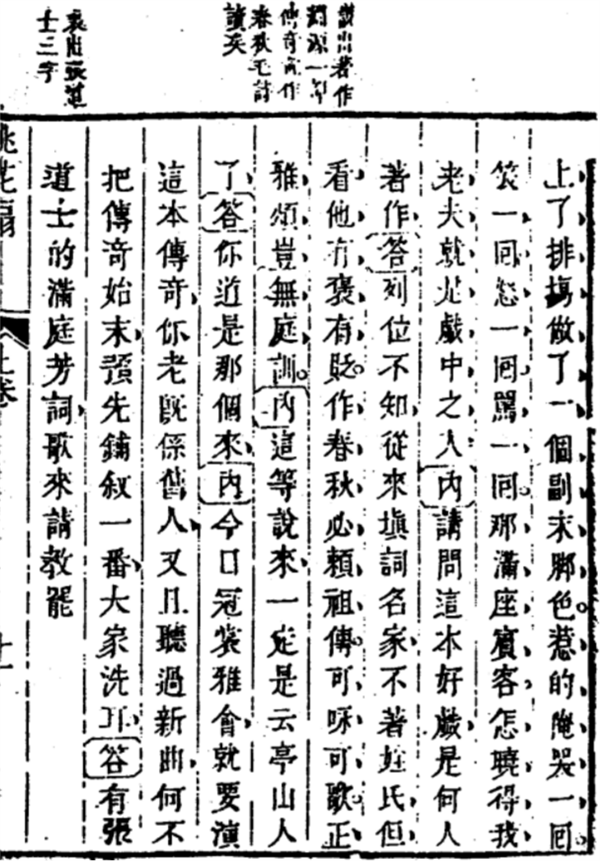 説出著作
淵源一部
傳奇直作
春秋毛詩
讀矣
表出張道
士三字
上了排塲做了一個副末脚色惹的俺哭一回
笑一回怒一回罵一回那滿座賓客怎曉得我
老夫就是戲中之人內請問這本好戲是何人
著作答列位不知從來塡詞名家不著姓氏但
看他有褒有貶作春秋必賴祖傳可咏可歌正
雅頌豈無庭訓內這等說來一定是云亭山人
了答你道是那個來內今日冠裳雅會就要演
這本傳奇你老旣係舊人又且聽過新曲何不
把傳奇始末預先鋪叙一番大家洗耳答有張
道士的滿庭芳詞歌來請教罷
桃花扇
上卷
十一